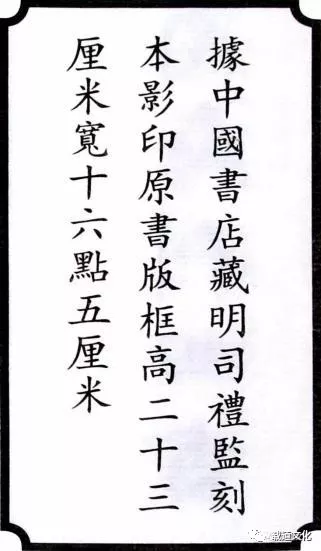 據中國書店藏明司禮監刻
本影印原書版框高二十三
厘米寬十六點五厘米
載道文化